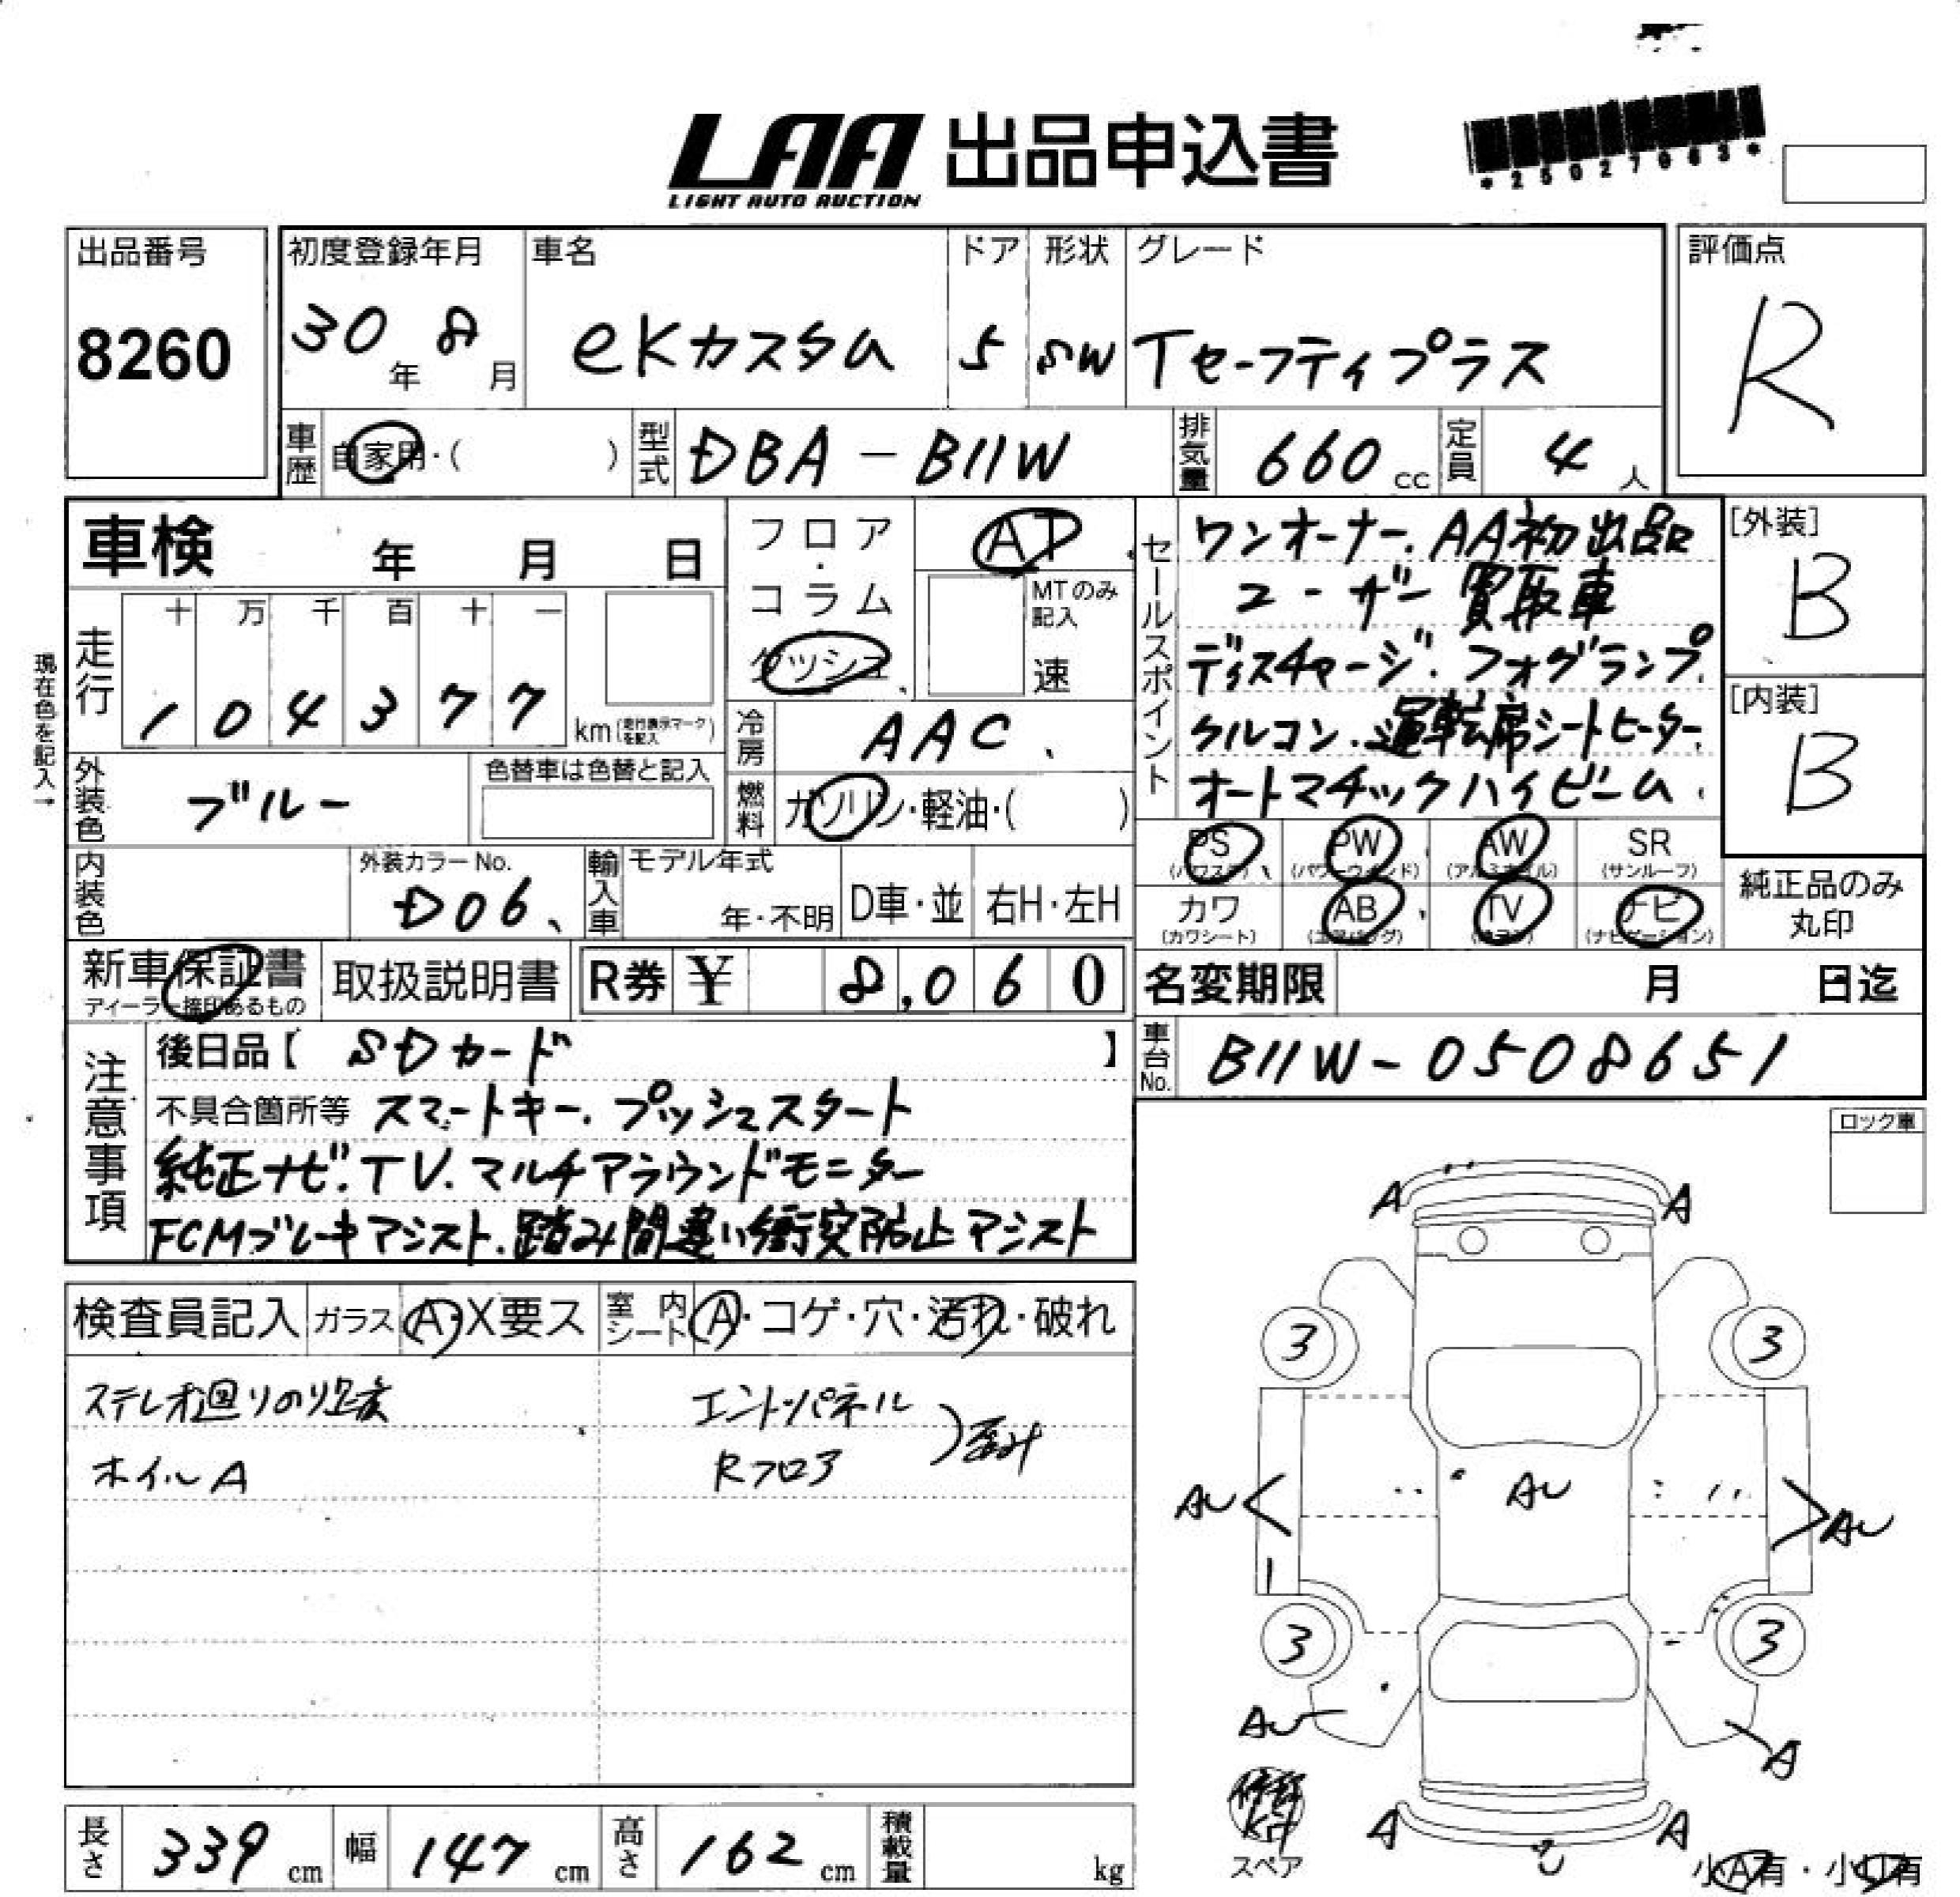 LAA 出品申込書
LIGHT AUTO AUCTION
*25027063*
出品番号
8260
初度登録年月
30年 8月
車名
eKカスタム
ドア
5
形状
SW
グレード
Tセーフティプラス
評価点
R
車歴 自家用・( )
型式 DBA-B11W
排気量 660 cc
定員 4 人
車検 年 月 日
フロア・コラム
ダッシュ
AT
MTのみ記入
速
現在色を記入→
走行
十 万 千 百 十 一
1 0 4 3 7 7
km(走行表示マークを記入)
冷房 AAC
燃料 ガソリン・軽油・( )
外装色 ブルー
色替車は色替と記入
内装色
外装カラーNo.
D06
輸入車
モデル年式
年・不明
D車・並
右H・左H
セールスポイント
ワンオーナー、AA初出品
ユーザー買取車
ディスチャージ、フォグランプ
クルコン、運転席シートヒーター
オートマチックハイビーム
[外装]
B
[内装]
B
PS (パワステ)
PW (パワーウインド)
AW (アルミホイル)
SR (サンルーフ)
カワ (カワシート)
AB (エアバッグ)
TV
ナビ (ナビゲーション)
純正品のみ
丸印
新車保証書
ディーラー捺印あるもの
取扱説明書
R券 ¥ 8,060
名変期限 月 日迄
車台No. B11W-0508651
注意事項
後日品【 SDカード 】
不具合箇所等 スマートキー、プッシュスタート
純正ナビ、TV、マルチアラウンドモニター
FCMブレーキアシスト、踏み間違い衝突防止アシスト
ロック車
検査員記入
ガラス A・X要ス
室内シート A・コゲ・穴・汚れ・破れ
ステレオ廻りのり跡
ホイルA
エンドパネル
Rフロア
)歪み
A A
3 3
AU AU AU
3 3
AU A
A A
スペア
小A有・小U有
長さ 339 cm
幅 147 cm
高さ 162 cm
積載量 kg